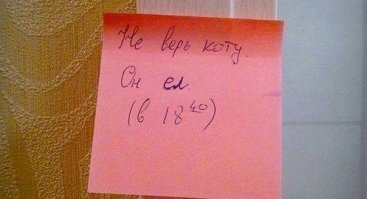 Не верь коту.
Он ел
(в 18⁴⁰)